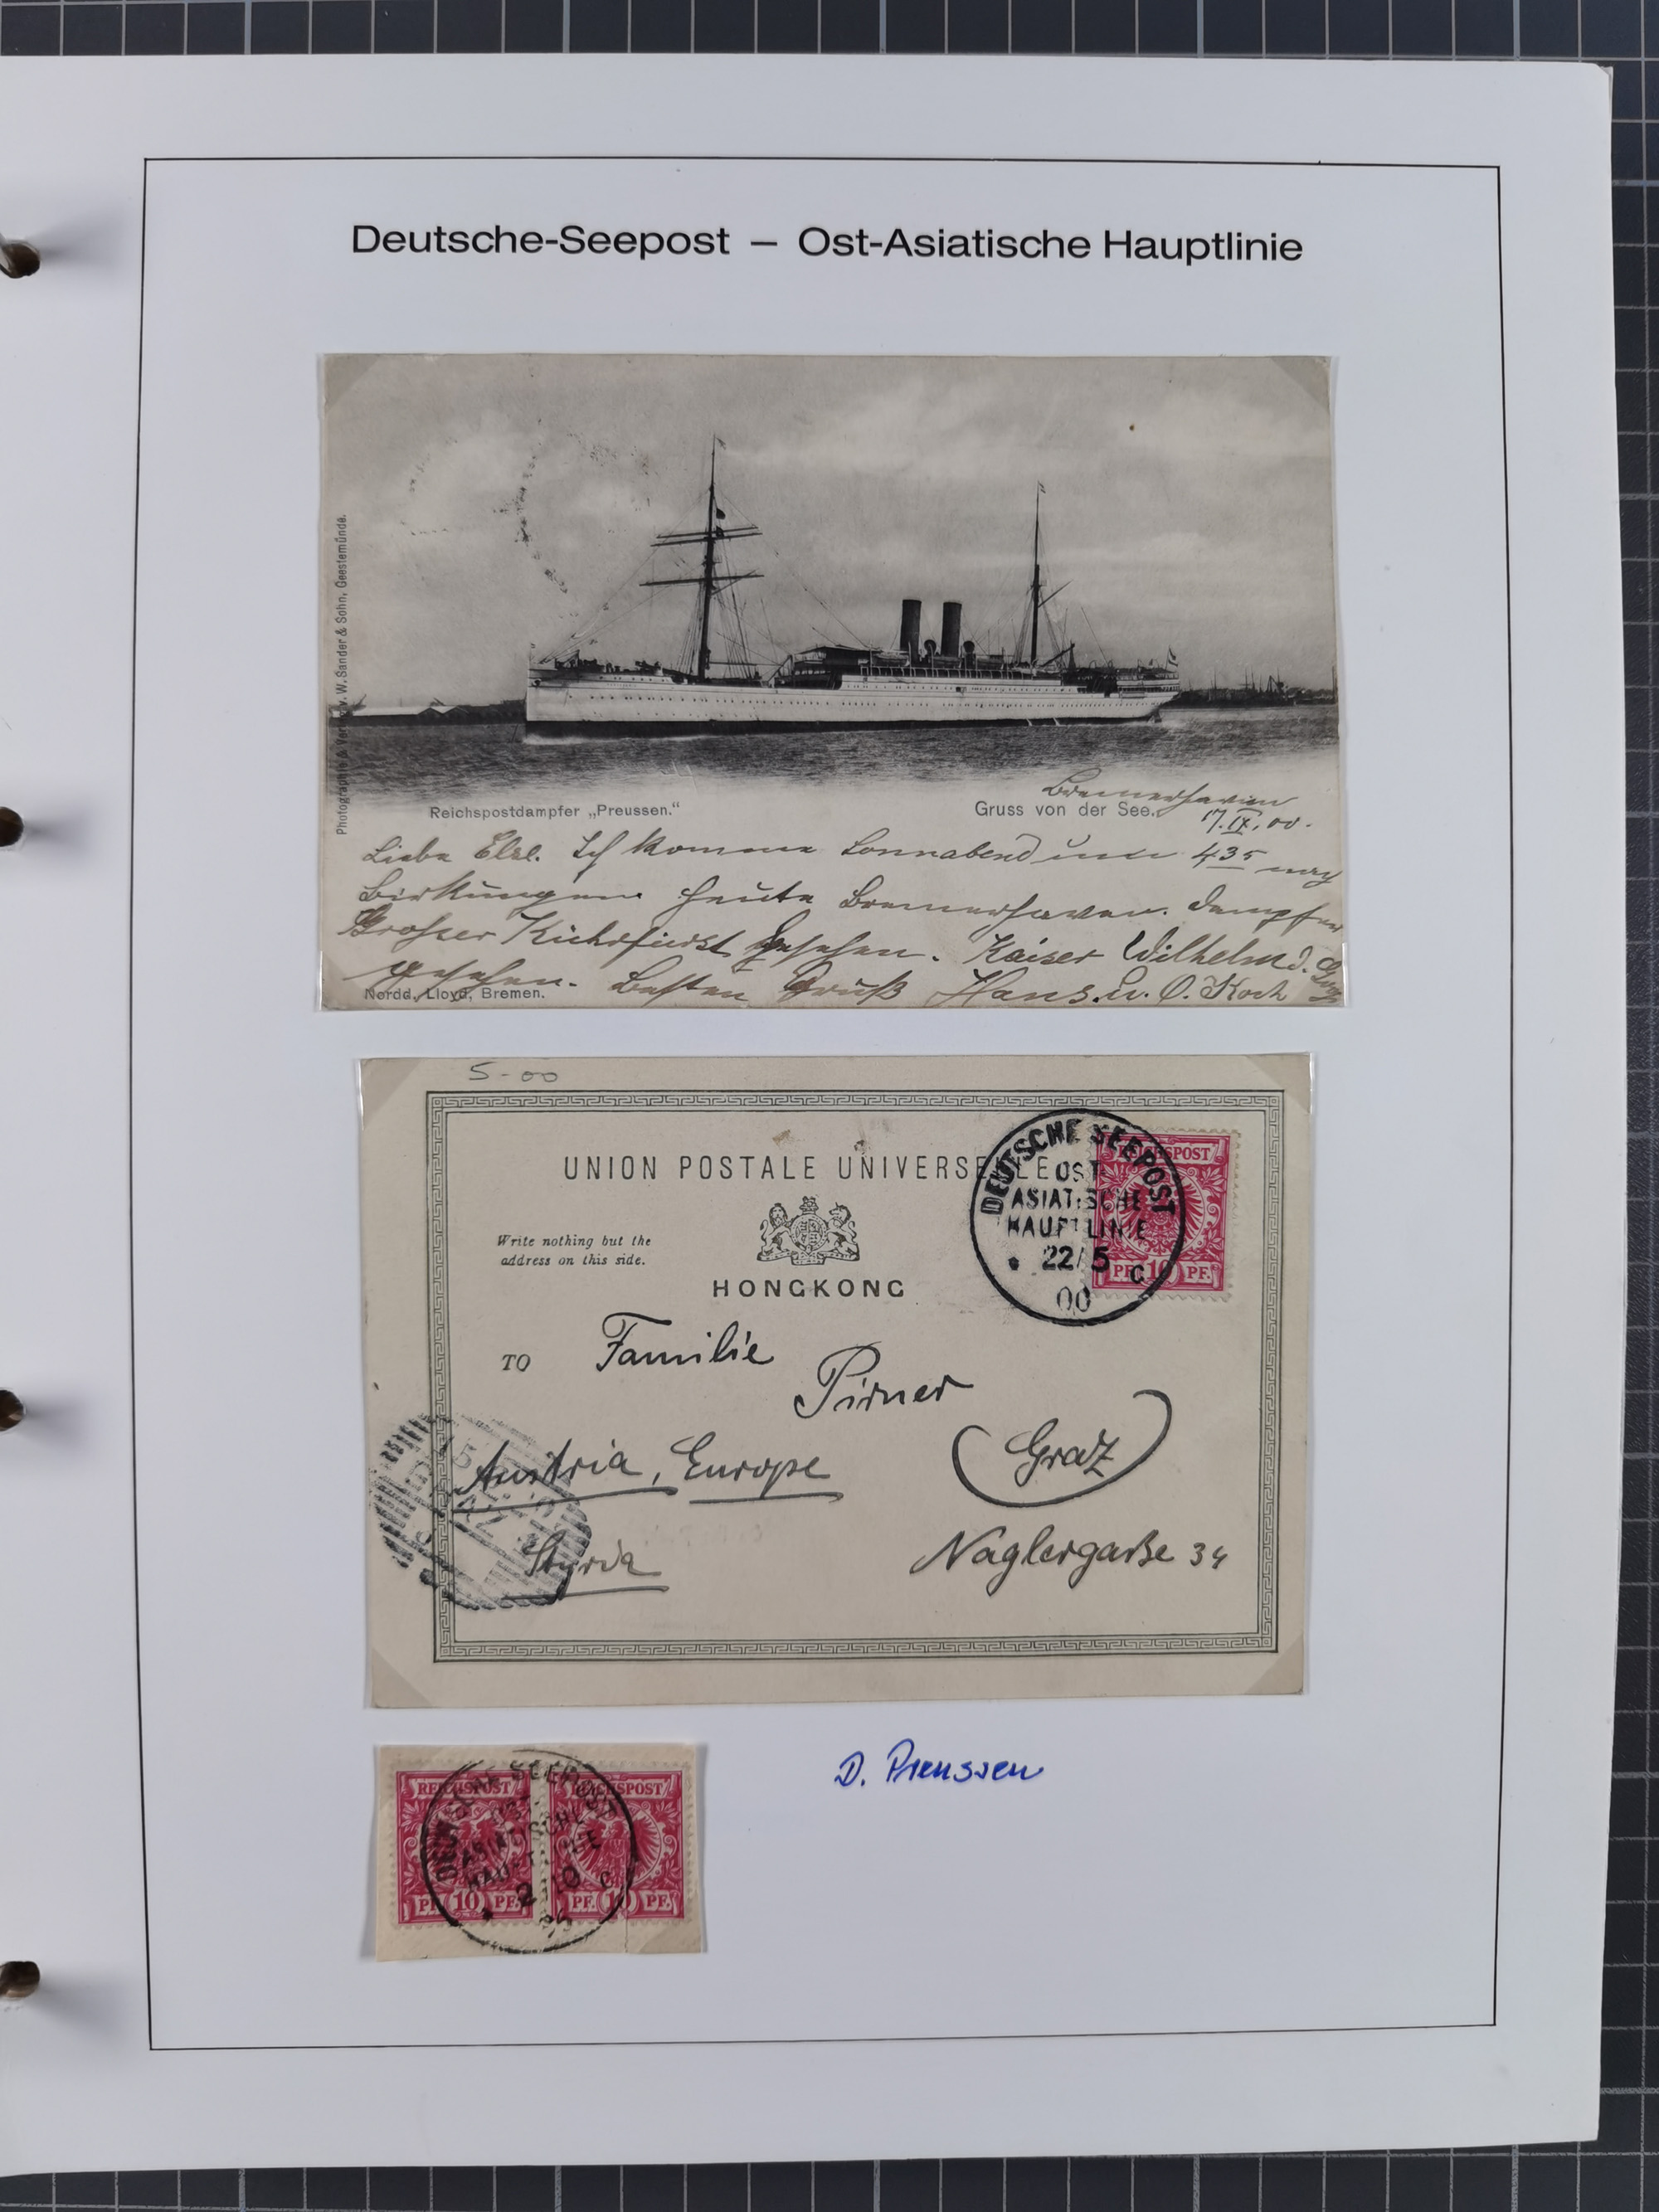 Deutsche-Seepost – Ost-Asiatische Hauptlinie
Photographie & Verlag v. W. Sander & Sohn, Geestemünde.
Reichspostdampfer „Preussen.“
Gruss von der See.
Bremerhaven
17.IX.00.
Liebe Else. Ich komme Sonnabend um 435 nach
Birkungen. Heute Bremerhaven. Dampfer
Grosser Kurfürst gesehen. Kaiser Wilhelm d.
gesehen. Besten Gruß Hans. O. Koch
Nordd. Lloyd, Bremen.
5-00
UNION POSTALE UNIVERSELLE
DEUTSCHE SEEPOST
OST-
ASIATISCHE
HAUPTLINIE
22/5
C
00
REICHSPOST
PF. 10 PF.
Write nothing but the
address on this side.
HONGKONG
TO
Familie
Pirner
Austria, Europe
(Graz)
Styria
Naglergaße 34
REICHSPOST REICHSPOST
DEUTSCHE SEEPOST
OST-
ASIATISCHE
HAUPTLINIE
C
PF. 10 PF. PF. 10 PF.
D. Preussen